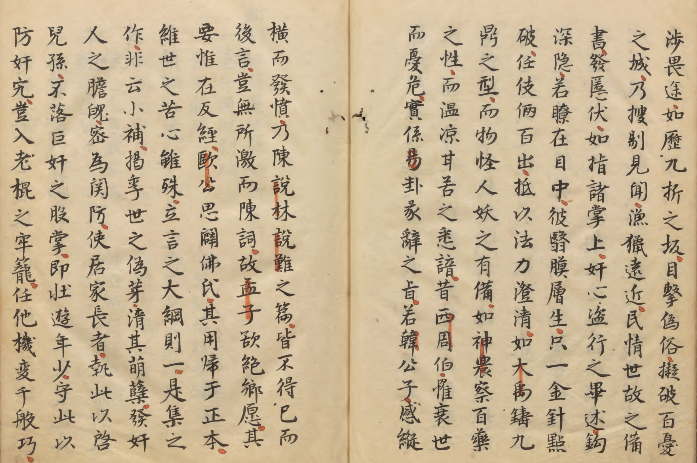 涉畏途如歷九折之坂目擊偽俗擬破百憂
之城乃搜剔見聞漁獵遠近民情世故之備
書發慝伏如指諸掌上奸心盜行之畢述鈎
深隐若瞭在目中彼翳膜層生只一金針點
破任伎俩百出抵以法力澄清如大禹鑄九
鼎之型而物怪人妖之有備如神農察百藥
之性而温凉甘苦之悉諳昔西周伯惟衰世
而憂危實係易卦彖辭之旨若韓公子感縱
横而發憤乃陳說林說難之篇皆不得已而
後言豈無所激而陳詞故孟子欲絶鄉愿其
要惟在反經歐公思闢佛氏其用歸于正本
維世之苦心雖殊立言之大綱則一是集之
作非云小補揭季世之偽芽清其萌蘖發奸
人之膽魄密為関防使居家長者執此以啓
兒孫不落巨奸之股掌即壯遊年少守此以
防奸宄豈入老棍之牢籠任他機變千般巧